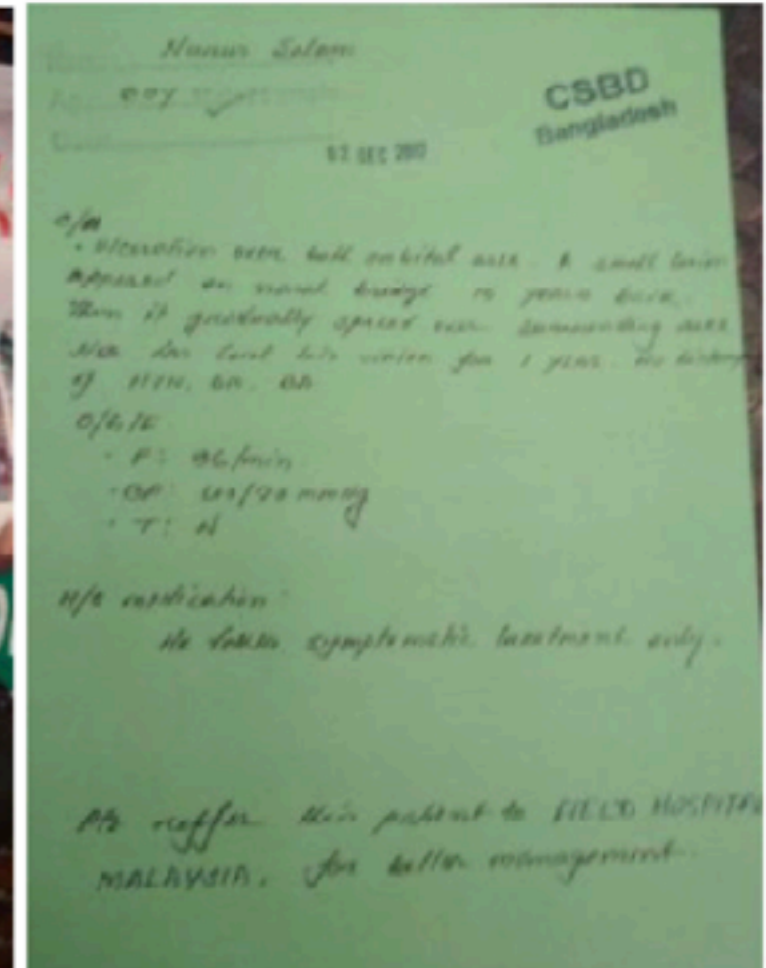 Nurur Salam
60y
CSBD
Bangladesh
02 DEC 2017
C/O
• Ulceration over both orbital area. A small lesion
appeared on nasal bridge 10 years back.
Then it gradually spread over surrounding area
has lost his vision for 1 year. No history
of HTN, DM, BA
O/G/E
• P: 86/min
• BP: /70 mmHg
• T: N
H/O medication:
He takes symptomatic treatment only.
Plz reffer this patient to FIELD HOSPITAL
MALAYSIA, for better management.